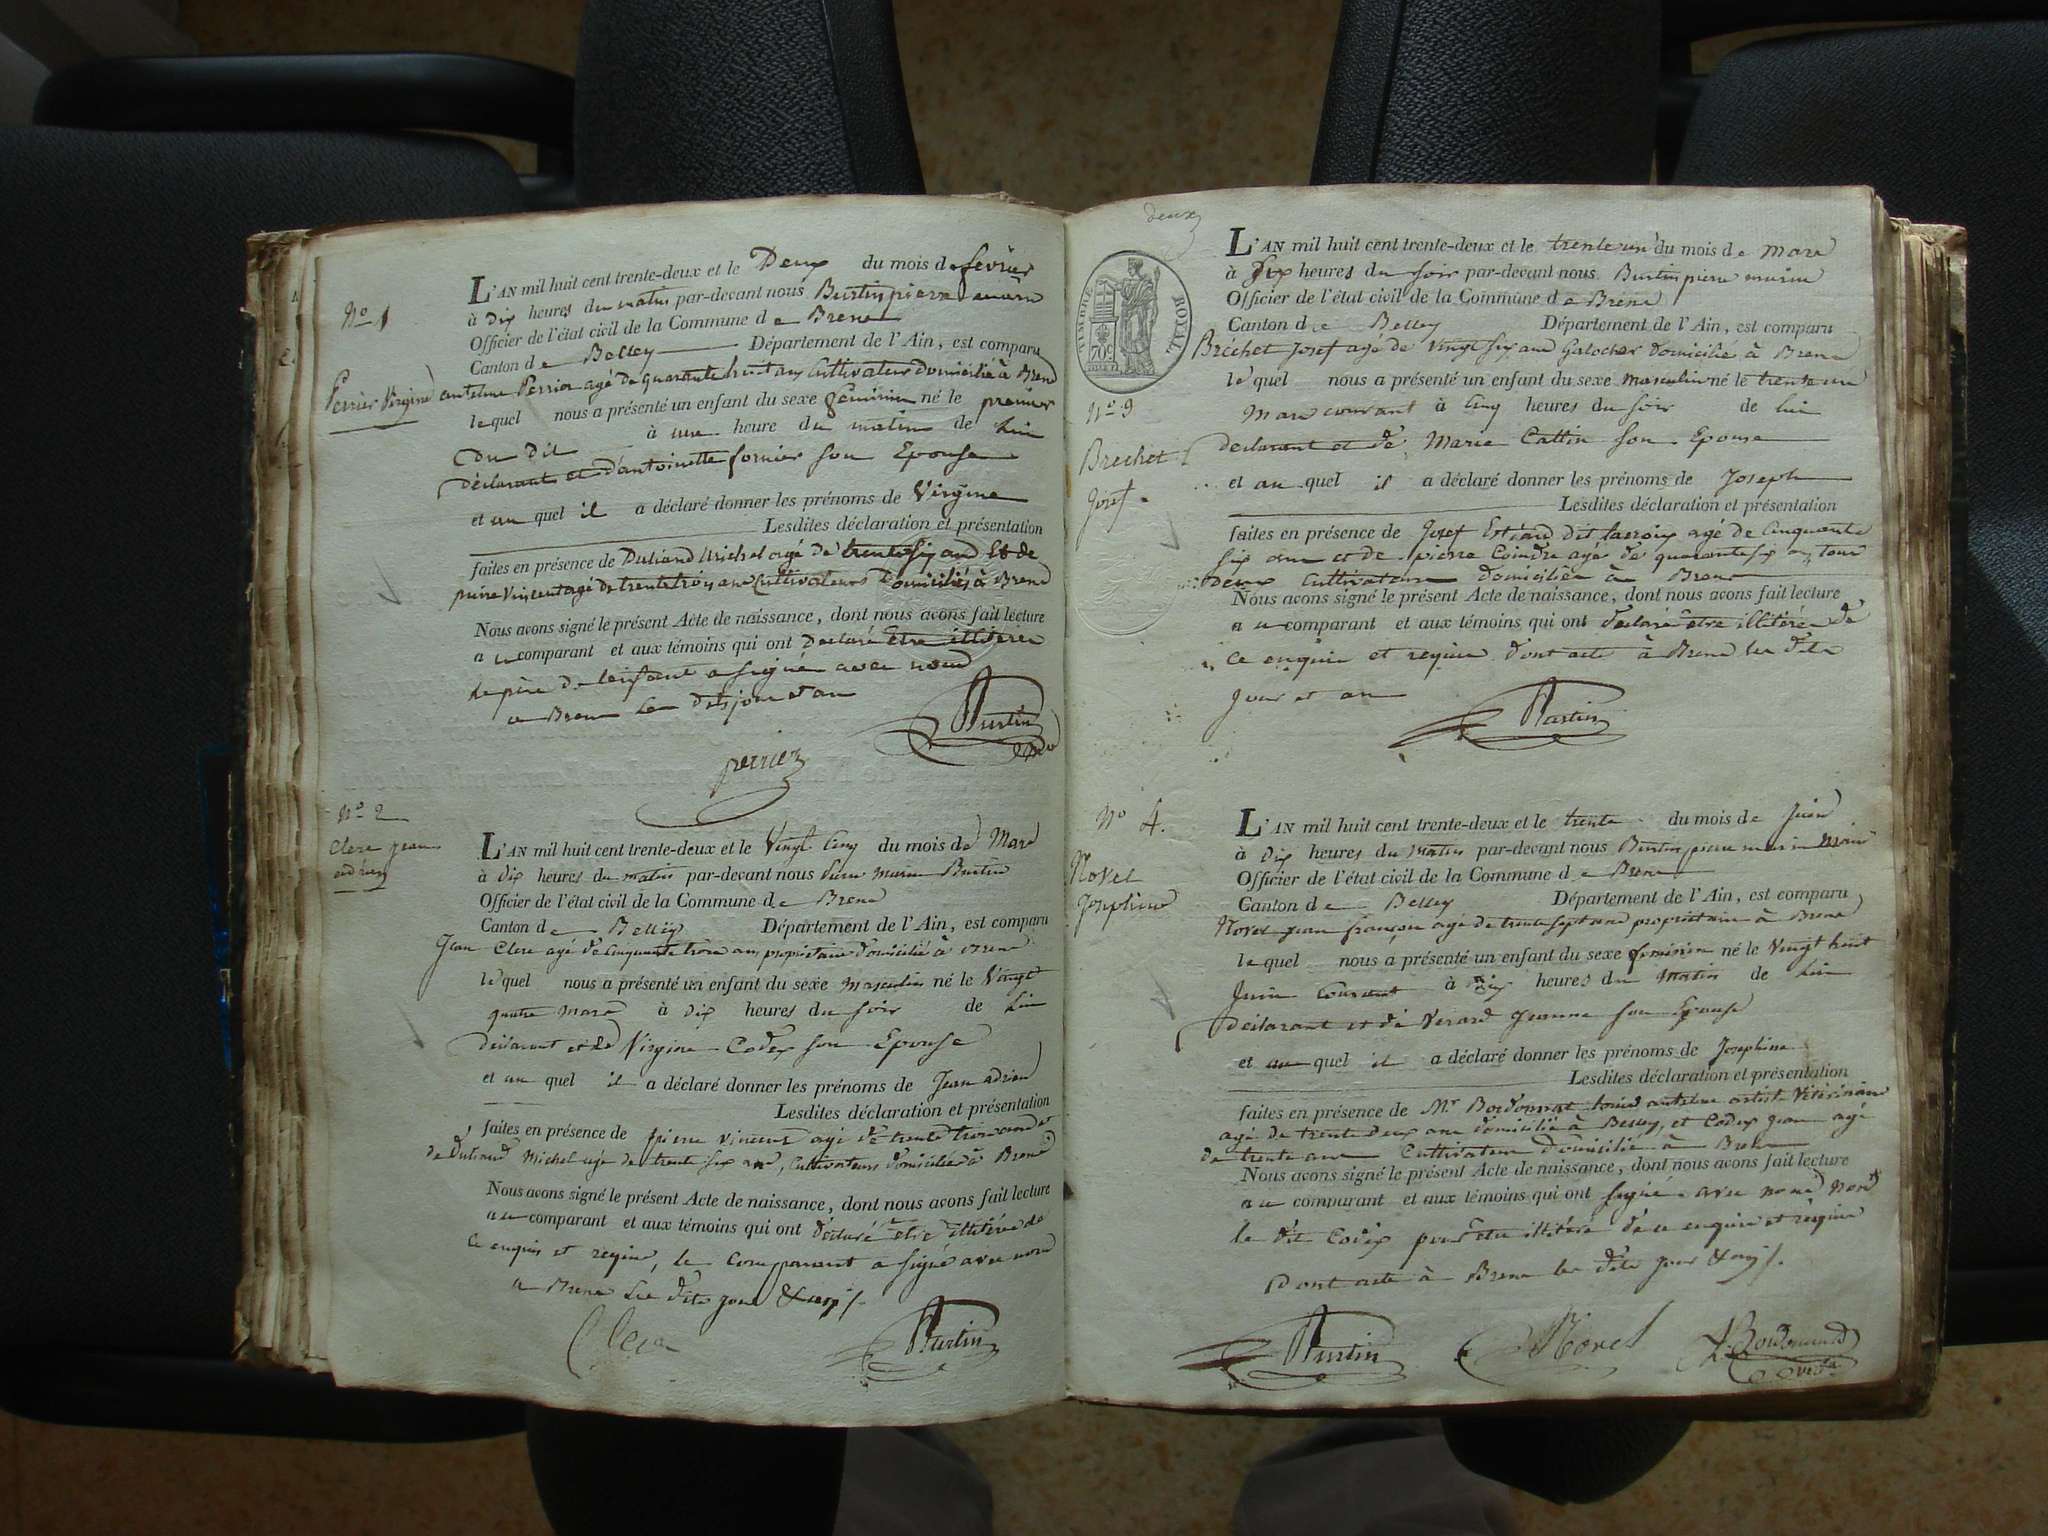 No 1
Perrier Virgine
L'AN mil huit cent trente-deux et le Deux du mois de février
à dix heures du matin par-devant nous Burtin pierre marin
Officier de l'état civil de la Commune de Brens
Canton de Belley Département de l'Ain, est comparu
antelme Perrier agé de quarante huit ans Cultivateur domicilié à Brens
lequel nous a présenté un enfant du sexe féminin né le premier
du dit à une heure du matin de lui
déclarant et d'antoinette fornier son Epouse
et au quel il a déclaré donner les prénoms de Virgine
Lesdites déclaration et présentation
faites en présence de Duliand Michel agé de trente six ans Et de
pierre Vincent agé de trente trois ans Cultivateurs Domiciliés à Brens
Nous avons signé le présent Acte de naissance, dont nous avons fait lecture
au comparant et aux témoins qui ont Declaré Etre illiterés
le père de lenfant a signé avec nous
a Brens Les Dits jour et an
Burtin
perrier
No 2
Clerc jean
adrien
L'AN mil huit cent trente-deux et le Vingt Cinq du mois de Mars
à dix heures du matin par-devant nous pierre marin Burtin
Officier de l'état civil de la Commune de Brens
Canton de Belley Département de l'Ain, est comparu
Jean Clerc agé de Cinquante trois ans propriétaire domicilié à Brens
lequel nous a présenté un enfant du sexe masculin né le Vingt
quatre Mars à dix heures du soir de lui
déclarant et de Virgine Codex son Epouse
et au quel il a déclaré donner les prénoms de Jean adrien
Lesdites déclaration et présentation
faites en présence de pierre Vincent agé de trente trois ans et
de Duliand Michel age de trente six ans, Cultivateurs domiciliés à Brens
Nous avons signé le présent Acte de naissance, dont nous avons fait lecture
au comparant et aux témoins qui ont déclaré etre illitérés de
ce enquis et requis, le Comparant a signé avec nous
a Brens Les dits jour & an ./.
Clerc
Burtin
deux
TIMBRE ROYAL
70c
No 9
Brechet
Josef
L'AN mil huit cent trente-deux et le trente un du mois de Mars
à Six heures du soir par-devant nous Burtin pierre marin
Officier de l'état civil de la Commune de Brens
Canton de Belley Département de l'Ain, est comparu
Bréchet Josef agé de Vingt six ans Galocher domicilié à Brens
lequel nous a présenté un enfant du sexe masculin né le trente un
Mars courant à Cinq heures du soir de lui
declarant et de Marie Cattin son Epouse
et au quel il a déclaré donner les prénoms de Joseph
Lesdites déclaration et présentation
faites en présence de Josef dit lacroix agé de Cinquante
six ans et de pierre Coindre agé de quarante six ans tous
deux Cultivateurs domiciliés à Brens
Nous avons signé le présent Acte de naissance, dont nous avons fait lecture
au comparant et aux témoins qui ont déclaré etre illitérés de
ce enquis et requis dont acte à Brens les dits
jour et an
Burtin
No 4.
Novel
Josephine
L'AN mil huit cent trente-deux et le trente du mois de Juin
à dix heures du Matin par-devant nous Burtin pierre marin Maire
Officier de l'état civil de la Commune de Brens
Canton de Belley Département de l'Ain, est comparu
Novel jean françois agé de trente sept ans propriétaire à Brens
lequel nous a présenté un enfant du sexe féminin né le Vingt huit
Juin Courant à dix heures du Matin de lui
declarant et de Verard Jeanne son Epouse
et au quel il a déclaré donner les prénoms de Josephine
Lesdites déclaration et présentation
faites en présence de Mr antelme artiste Vétérinaire
agé de trente deux ans domicilié à Belley, et Codex Jean agé
de trente ans Cultivateur domicilié à Brens
Nous avons signé le présent Acte de naissance, dont nous avons fait lecture
au comparant et aux témoins qui ont signé avec nous non
le dit Codex pour etre illitéré de ce enquis et requis
Dont acte à Brens les dits jour & an ./.
Burtin
Novel